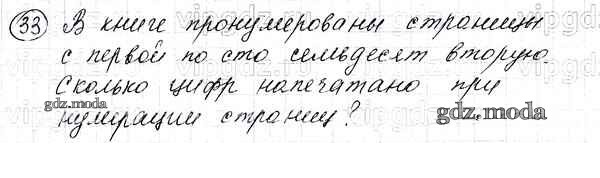 33 В книге пронумерованы страницы
с первой по сто семьдесят вторую.
Сколько цифр напечатано при
gdz.moda
нумерации страниц?
gdz.moda